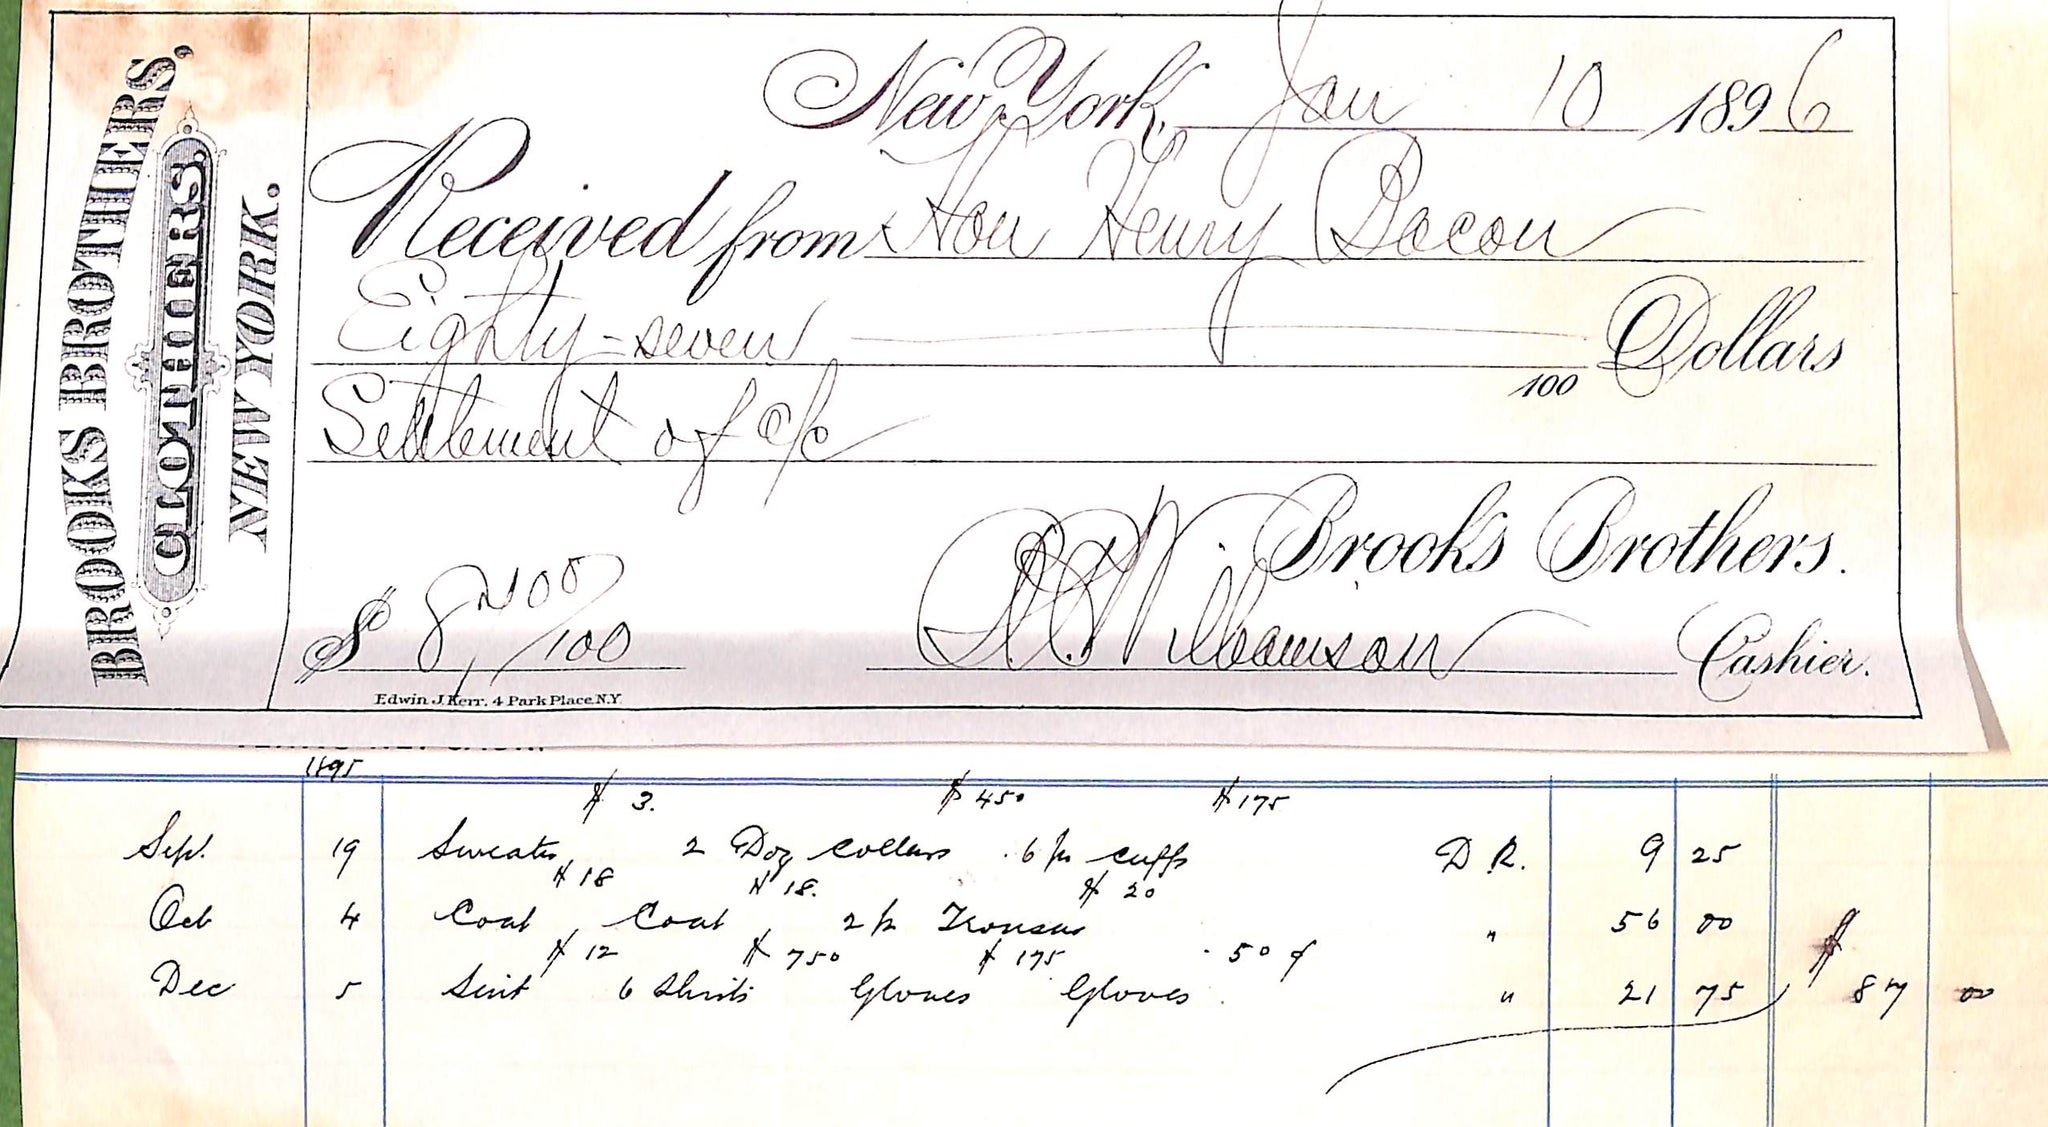 BROOKS BROTHERS,
CLOTHIERS.
NEW YORK.
New York, Jan 10 1896
Received from Hon Henry Bacon
Eighty-seven 100 Dollars
Settlement of a/c
Brooks Brothers.
$ 87 00/100 Williamson Cashier.
Edwin J. Kerr. 4 Park Place N.Y.
1895
$ 3. $ 450 $ 175
Sept. 19 Sweater 2 Doz Collars 6 pr cuffs D R. 9 25
$ 18 $ 18. $ 20
Oct 4 Coat Coat 2 pr Trousers " 56 00
$ 12 $ 750 $ 175 50 ¢
Dec 5 Suit 6 Shirts Gloves Gloves " 21 75 $ 87 00